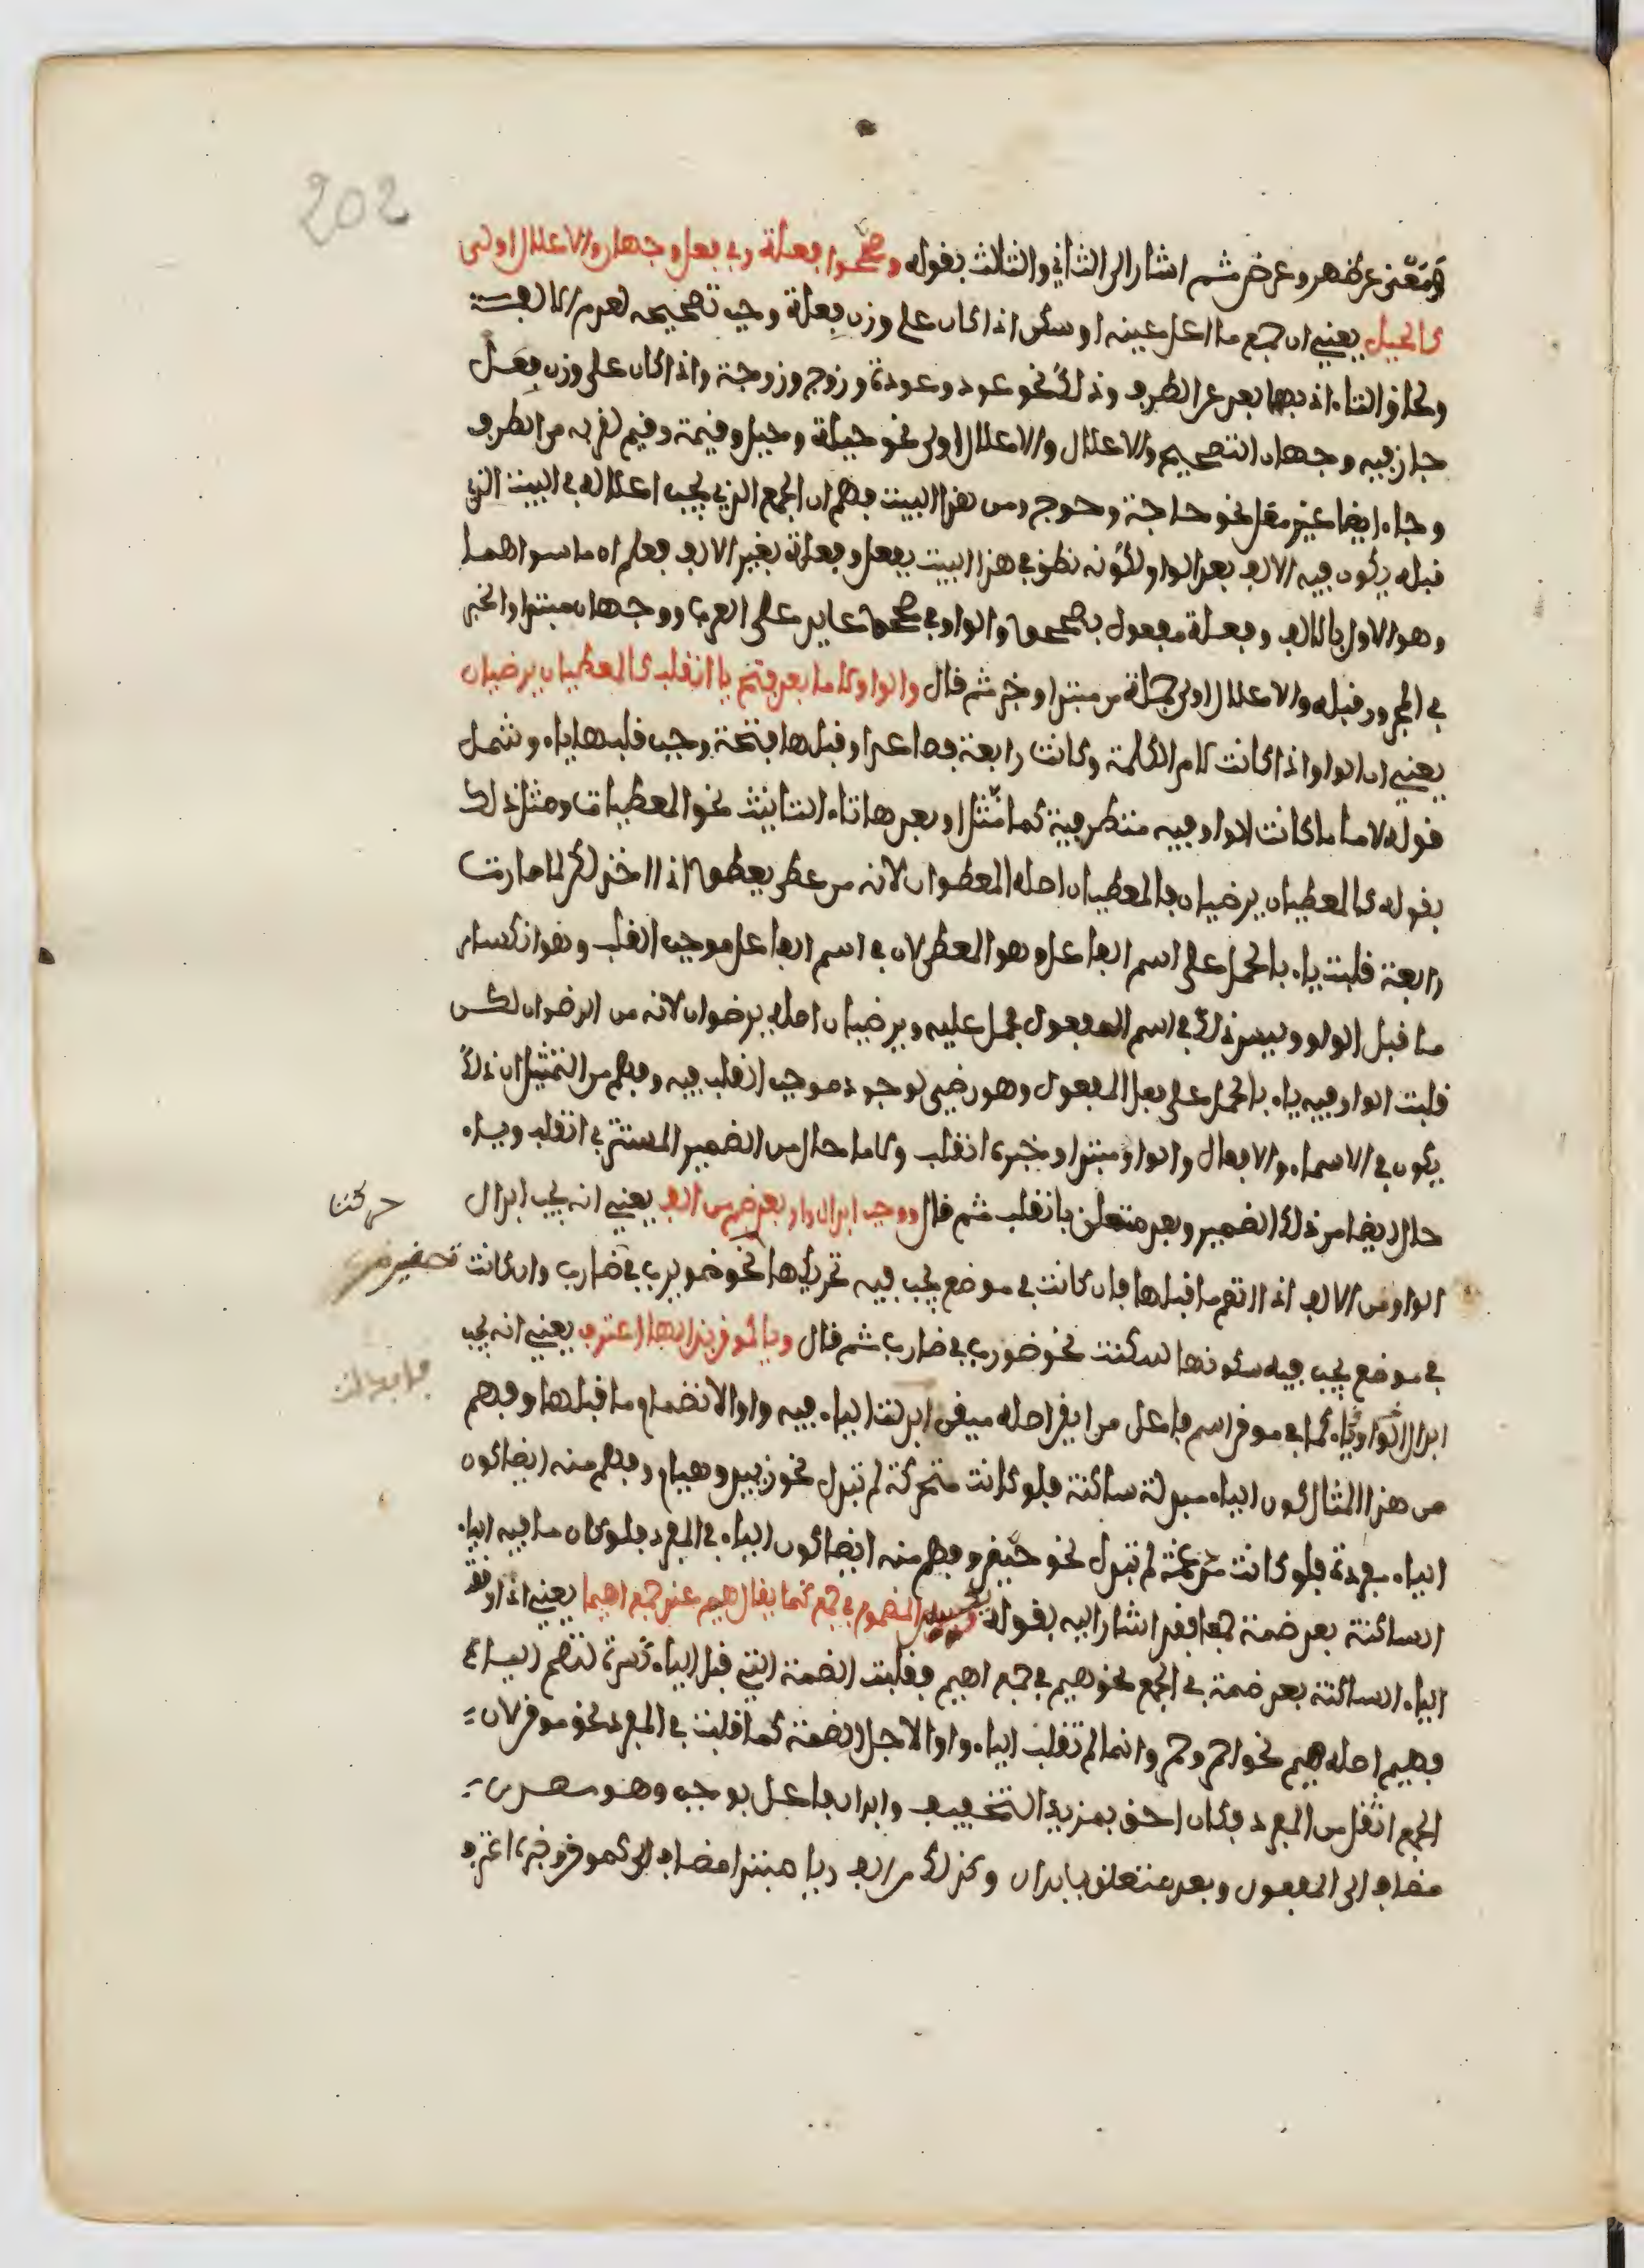 202
ومعنى عن ظهر وعرض ثم اشار الى الثاني والثالث بقوله وصححوا فعلة وفي فعل وجهان والاعلال اولى
كالحيل يعني ان جمع ما اعل عينه او سكن اذا كان على وزن فعلة وجب تصحيحه لعدم الالف
ولحاق التاء اذ بها بعد عن الطرف وذلك نحو عود وعودة وزوج وزوجة واذا كان على وزن فعل
جاز فيه وجهان التصحيح والاعلال والاعلال اولى نحو حيلة وحيل وقيمة وقيم لقربه من الطرف
وجاء ايضا غير معل نحو حاجة وحوج ومن هذا البيت فهم ان الجمع الذي يجب اعلاله في البيت الذي
قبله يكون فيه الالف بعد الواو لكونه نطق في هذا البيت بفعل وفعلة بغير الالف فعلم ان ما سواهما
وهو الاول بالالف وفعلة مفعول بصححوا والواو في صححوا عايد على العرب ووجهان مبتدا والخبر
في المجرور قبله والاعلال اولى جملة من مبتدا وخبر ثم قال والواو لاما بعد فتح يا انقلب كالمعطيان يرضيان
يعني ان الواو اذا كانت لام الكلمة وكانت رابعة فصاعدا وقبلها فتحة وجب قلبها ياء وشمل
قوله لاما ما كانت الواو فيه متطرفة كما مثل او بعدها تاء التانيث نحو المعطيات ومثل ذلك
بقوله كالمعطيان يرضيان فالمعطيان اصله المعطوان لانه من عطى يعطوا اذا اخذ لكن لما صارت
رابعة قلبت ياء بالحمل على اسم الفاعل وهو المعطى لان في اسم الفاعل موجب القلب وهو انكسار
ما قبل الواو وليس ذلك في اسم المفعول فحمل عليه ويرضيان اصله يرضوان لانه من الرضوان لكن
قلبت الواو فيه ياء بالحمل على فعل المفعول وهو رضي لوجود موجب القلب فيه وفهم من التمثيل ان ذلك
يكون في الاسماء والافعال والواو مبتدا وخبره انقلب ولاما حال من الضمير المستتر في انقلب وياء
حال ايضا من ذلك الضمير وبعد متعلق بانقلب ثم قال ووجب ابدال واو بعد ضم من الف يعني انه يجب ابدال
حركتنا
الواو من الالف اذا انضم ما قبلها فان كانت في موضع يجب فيه تحريكها نحو ضويرب في ضارب وان كانت
تصغير
في موضع يجب فيه سكونها سكنت نحو ضورب في ضارب ثم قال ويا كموقن بذا لها اعترف يعني انه يجب
ابدال الواو ياء كما في موقن اسم فاعل من ايقن اصله ميقن ابدلت الياء فيه واوا لانضمام ما قبلها وفهم
من هذا المثال كون الياء مبدلة ساكنة فلو كانت متحركة لم تبدل نحو زبير وهيام وفهم منه ايضا كون
الياء مفردة فلو كانت مدغمة لم تبدل نحو حيض وفهم منه ايضا كون الياء في المفرد فلو كان ما فيه الياء
الساكنة بعد ضمة جمعا فقد اشار اليه بقوله ويكسر المضموم في جمع كما يقال هيم عند جمع اهيما يعني اذا وقعت
الياء الساكنة بعد ضمة في الجمع نحو هيم في جمع اهيم فقلبت الضمة التي قبل الياء كسرة لتصح الياء
فهيم اصله هيم نحو احمر وحمر وانما لم تقلب الياء واوا لاجل الضمة كما قلبت في المفرد نحو موقن لان
الجمع اثقل من المفرد فكان احق بمزيد التخفيف وابدال فاعل بوجب وهو مصدر
مضاف الى المفعول وبعد متعلق بابدال وكذلك من الف ويا مبتدا مضاف الى كموقن وخبره اعترف